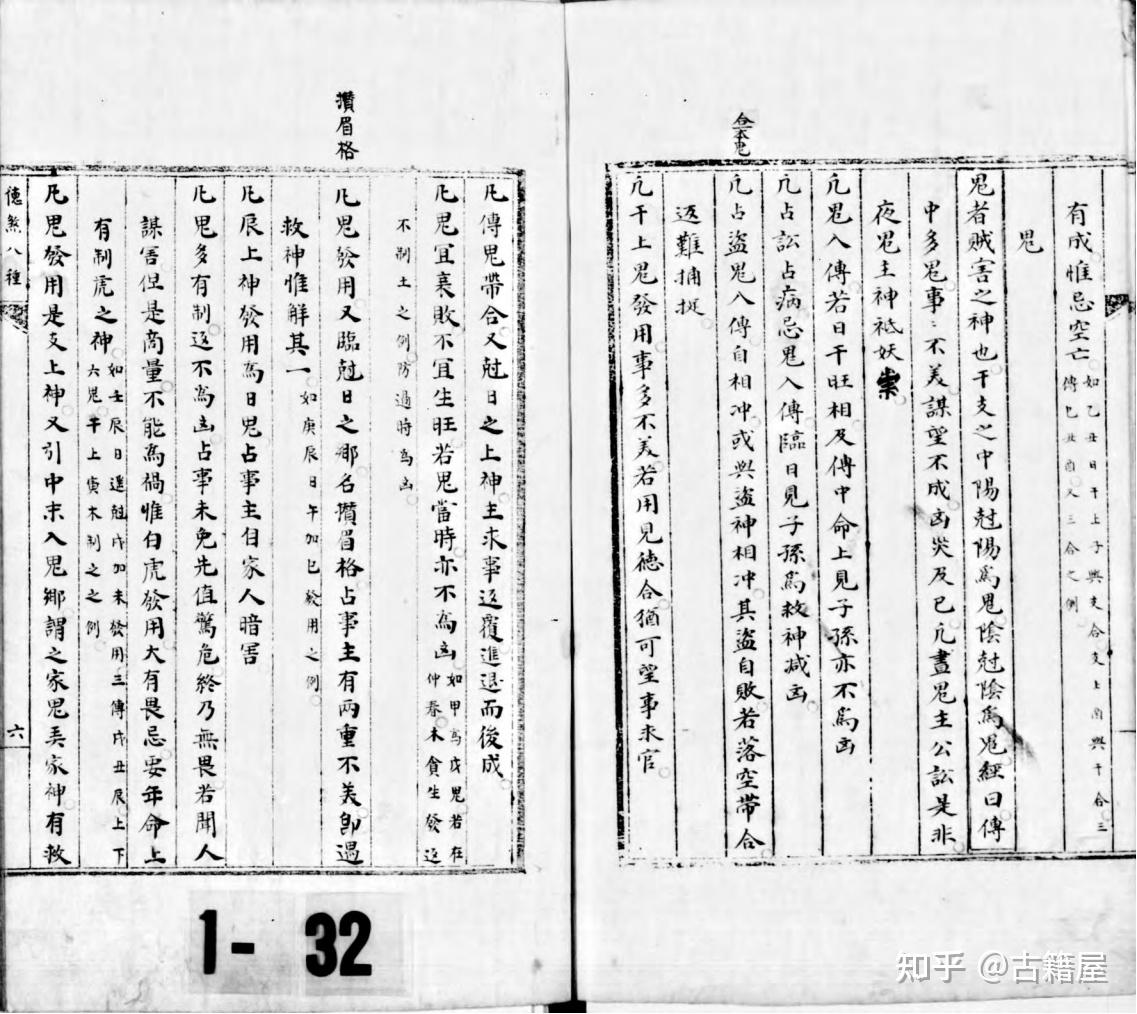 合本鬼
有成惟忌空亡如乙丑日干上子與支合支上酉與干合三
傳乚丑酉人三合之例
鬼
鬼者賊害之神也干支之中陽尅陽為鬼陰尅陰為鬼經曰傳
中多鬼事〻不美謀望不成凶災及已凢晝鬼主公訟是非
夜鬼主神祗妖祟
凢鬼入傳若日干旺相及傳中命上見子孫亦不為凶
凢占訟占病忌鬼入傳臨日見子孫為救神減凶
凢占盜鬼入傳自相冲或與盜神相冲其盜自敗若落空帶合
返難捕捉
凢干上鬼發用事多不美若用見德合猶可望事求官
攢眉格
凡傳鬼帶合又尅日之上神主求事返覆進退而後成
凡鬼宜衰敗不宜生旺若鬼當時亦不為凶如甲為戊鬼若在
仲春木貪生發返
不制土之例防過時為凶
凡鬼發用又臨尅日之鄉名攢眉格占事主有兩重不美即遇
救神惟解其一如庚辰日午加巳發用之例
凡辰上神發用為日鬼占事主自家人暗害
凡鬼多有制返不為凶占事未免先值驚危終乃無畏若聞人
謀害但是商量不能為禍惟白虎發用大有畏忌要年命上
有制虎之神如壬辰日進尅戌加未發用三傳戌丑辰上下
六鬼午上寅木制之之例
凡鬼發用是支上神又引中末入鬼鄉謂之家鬼弄家神有救
德煞八種
六
1- 32
知乎 @古籍屋